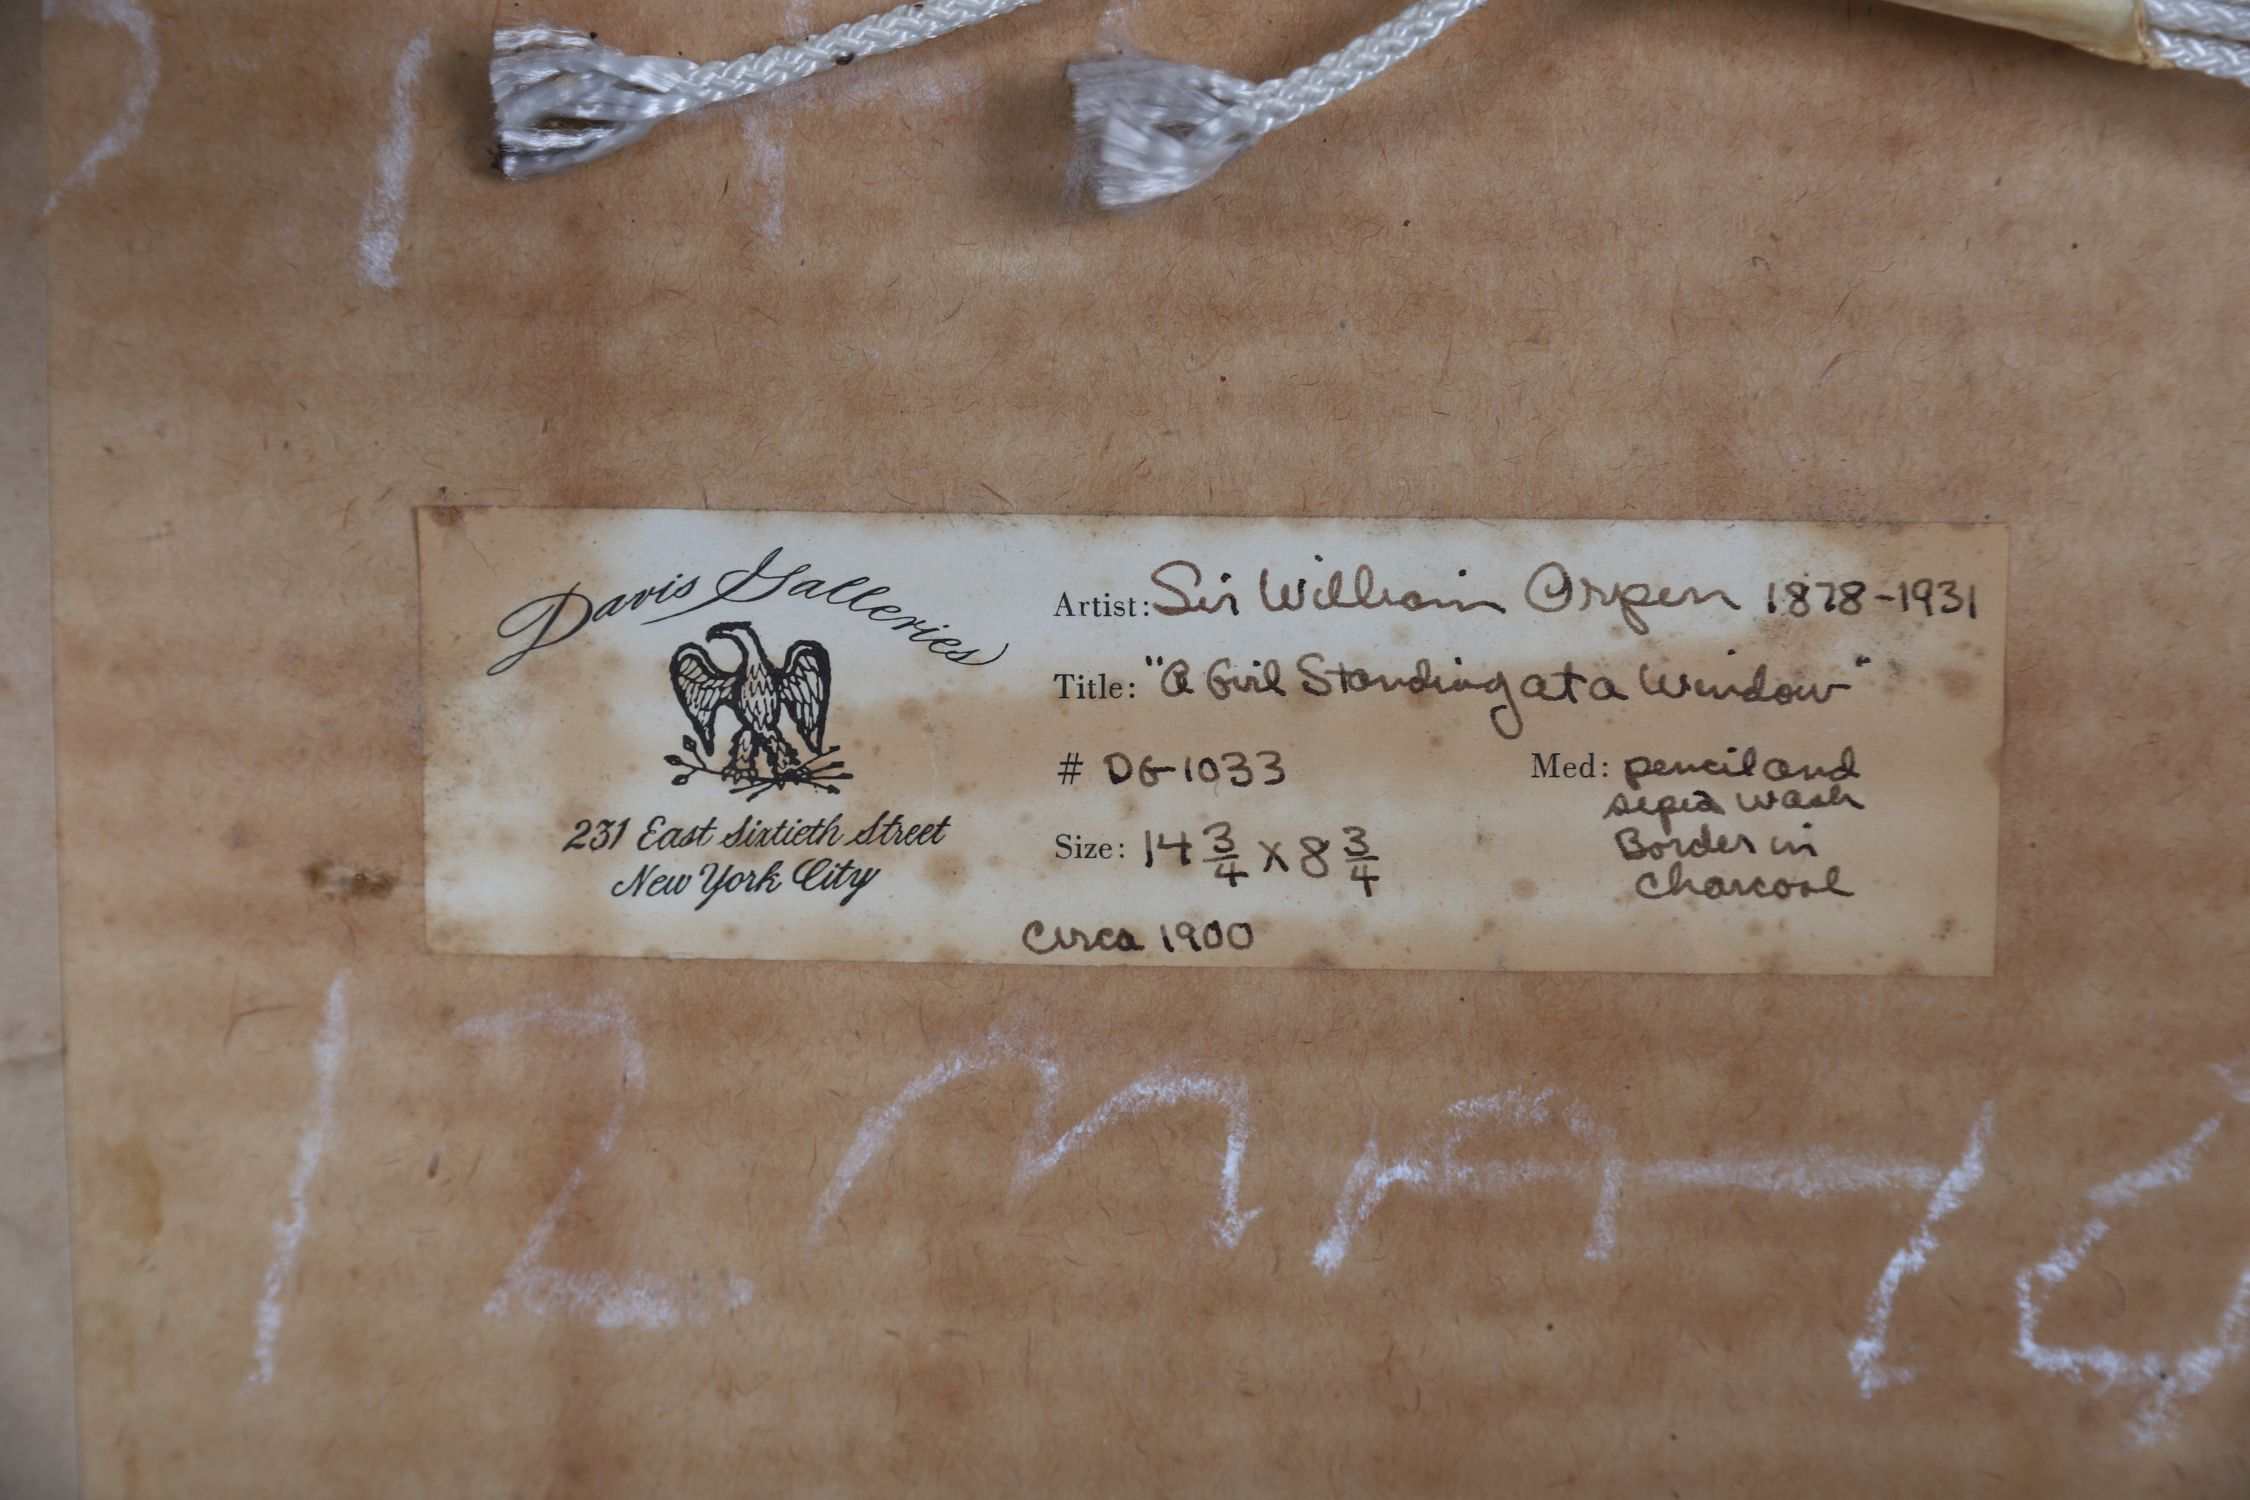 Davis Galleries
231 East Sixtieth Street
New York City
Artist: Sir William Orpen 1878-1931
Title: "A Girl Standing at a Window"
# DG-1033
Med: pencil and
sepia wash
Border in
Charcoal
Size: 14 3/4 x 8 3/4
Circa 1900
12 MA